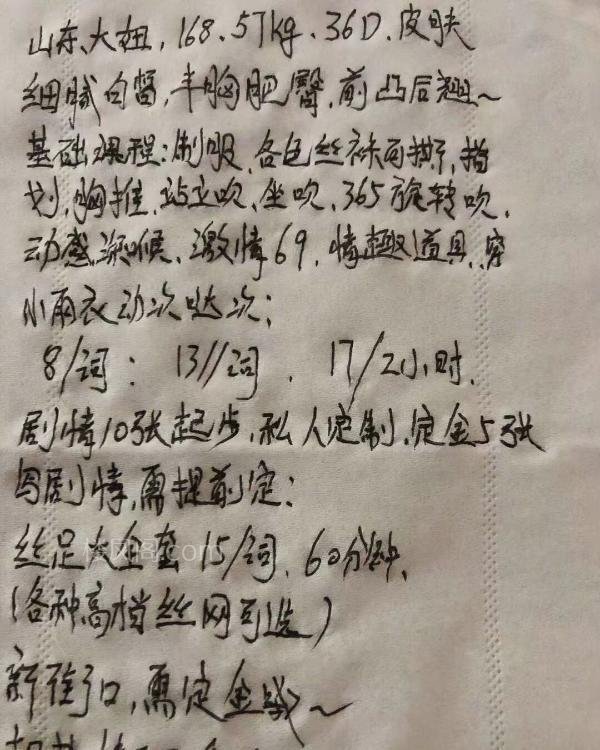 山东、大妞，168.57kg、36D.皮肤
细腻白皙，丰胸肥臀，前凸后翘～
基础课程：制服、各色丝袜可撕，指
划，胸推，站立吹、坐吹、365旋转吹，
动感深喉、激情69，情趣道具，穿
小雨衣动次哒次；
8/词： 13//词、17/2小时.
剧情10张起步，私人定制，定金5张
写剧情，需提前定：
丝足大全套15/词，60分钟，
（各种高档丝网可选）
新街口，需定金哦～